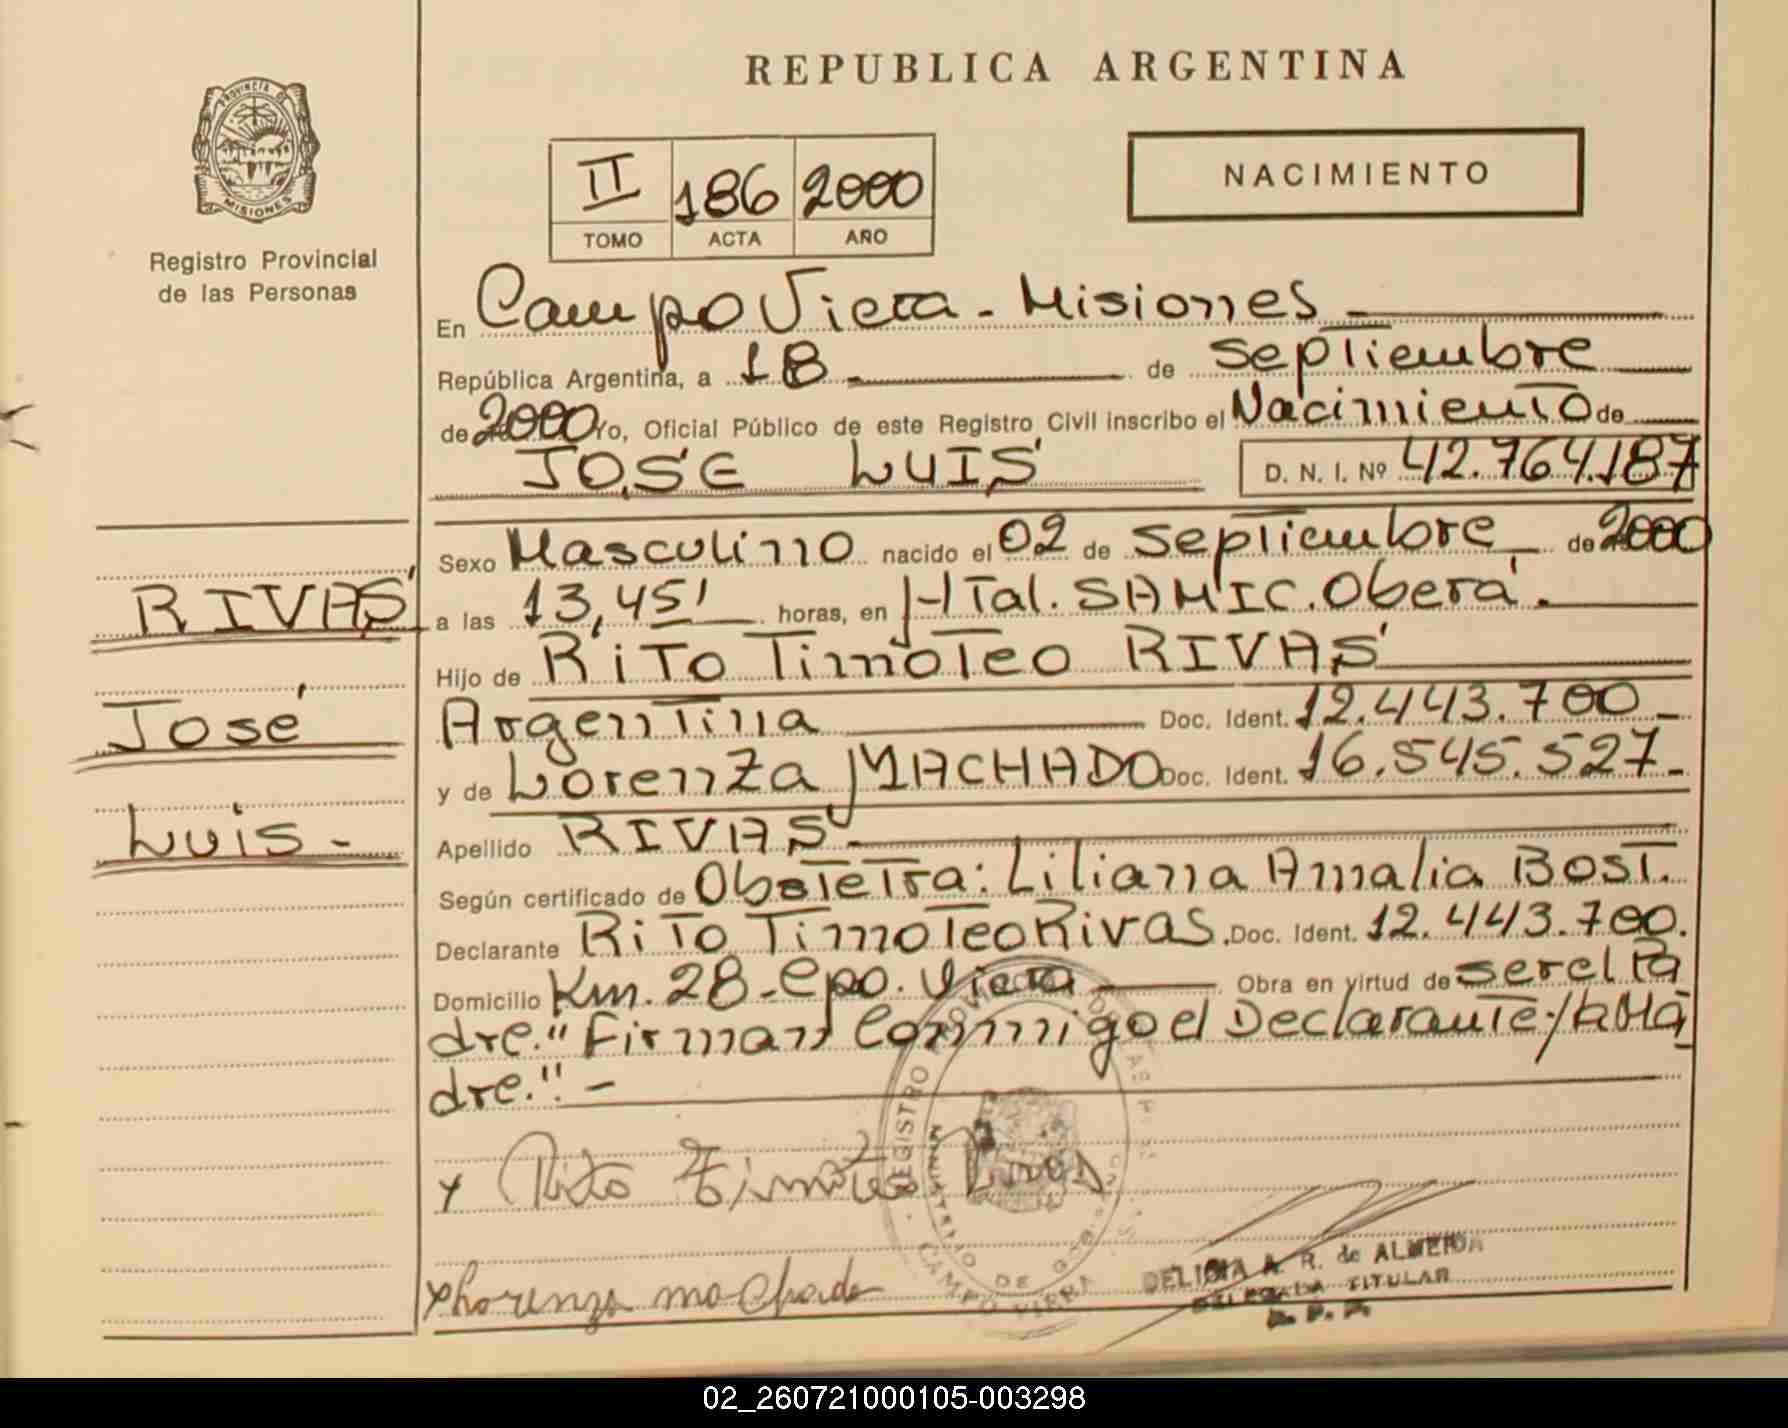 REPUBLICA ARGENTINA
PROVINCIA DE MISIONES
Registro Provincial
de las Personas
II 186 2000
TOMO ACTA AÑO
NACIMIENTO
En Campo Viera - Misiones
República Argentina, a 18 de Septiembre
de 2000 Yo, Oficial Público de este Registro Civil inscribo el Nacimiento de
JOSE LUIS D. N. I. Nº 42.764.187
RIVAS
José
Luis -
Sexo Masculino nacido el 02 de Septiembre de 2000
a las 13,45' horas, en HTal. SAMIC. Oberá.
Hijo de RiTo TimoTeo RIVAS
Argentina Doc. Ident. 12.443.700 -
y de Lorenza MACHADO Doc. Ident. 16.545.527 -
Apellido RIVAS -
Según certificado de ObsteTra: Liliana Amalia BOST.
Declarante RiTo TimoTeo Rivas. Doc. Ident. 12.443.700.
Domicilio Km. 28 - Cpo. Viera Obra en virtud de ser el Pa
dre." Firman Conmigo el Declarante y la Ma
dre." -
Rito Timoteo Rivas
Lorenza machado
REGISTRO PROVINCIAL DE LAS PERSONAS
MINISTERIO DE GOBIERNO
CAMPO VIERA
DELICIA A. R. de ALMEIDA
DELEGADA TITULAR
R. P. P.
02_260721000105-003298